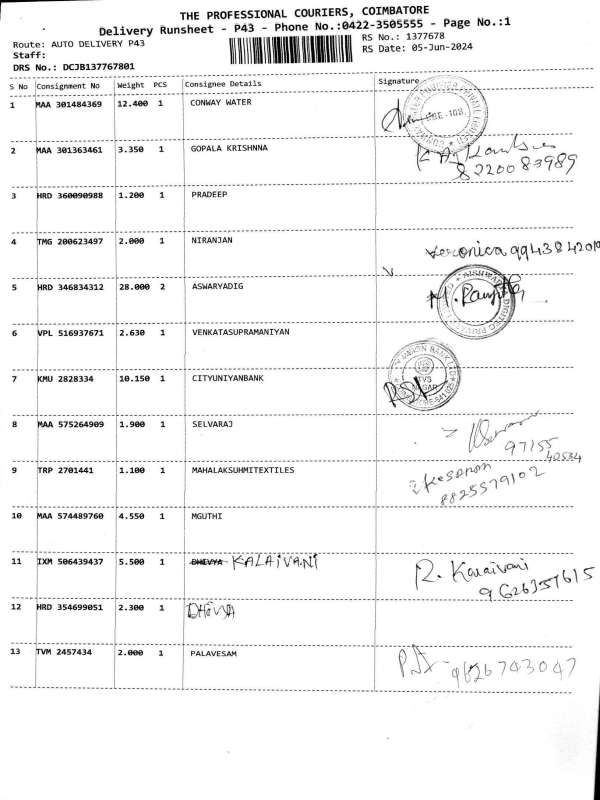 THE PROFESSIONAL COURIERS, COIMBATORE
Delivery Runsheet - P43 - Phone No.:0422-3505555 - Page No.:1
Route: AUTO DELIVERY P43
Staff:
DRS No.: DCJB137767801
RS No.: 1377678
RS Date: 05-Jun-2024
S No Consignment No Weight PCS Consignee Details Signature
1 MAA 301484369 12.400 1 CONWAY WATER
2 MAA 301363461 3.350 1 GOPALA KRISHNNA
8220083989
3 HRD 360090988 1.200 1 PRADEEP
4 TMG 200623497 2.000 1 NIRANJAN
Veronica 9943842010
5 HRD 346834312 28.000 2 ASWARYADIG
6 VPL 516937671 2.630 1 VENKATASUPRAMANIYAN
7 KMU 2828334 10.150 1 CITYUNIYANBANK
8 MAA 575264909 1.900 1 SELVARAJ
97155
40534
9 TRP 2701441 1.100 1 MAHALAKSUHMITEXTILES
8825579102
10 MAA 574489760 4.550 1 MGUTHI
11 IXM 506439437 5.500 1 DHEVYA KALAIVANI
R. Kalaivani
9626351615
12 HRD 354699051 2.300 1 DHEVYA
13 TVM 2457434 2.000 1 PALAVESAM
9626743047